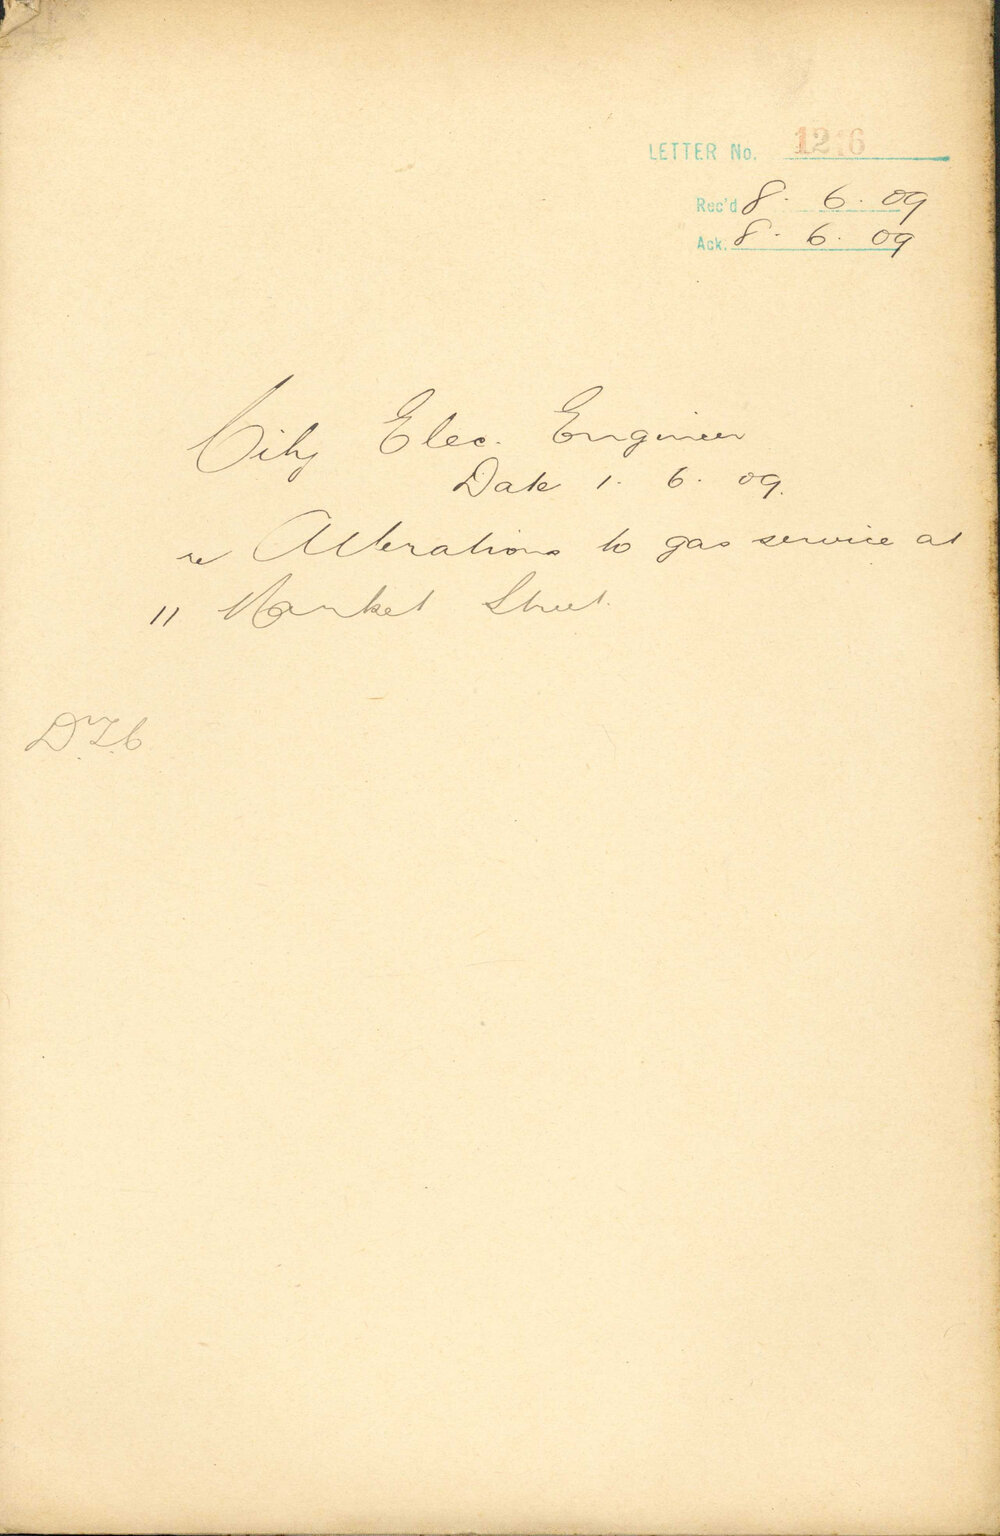 LETTER No. 1216
Rec'd 8. 6. 09
Ack. 8. 6. 09
City Elec. Engineer
Date 1. 6. 09.
re Alterations to gas service at
11 Market Street.